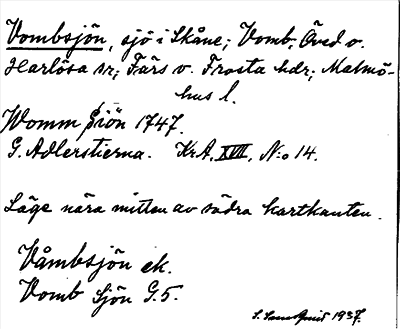 Vombsjön, sjö i Skåne; Vomb, Öved o.
Harlösa sr; Färs o. Frosta hdr; Malmö-
hus l.
Womm Siön 1747.
G. Adlerstierna. KrA, XVII, No 14.
Läge nära mitten av södra kartkanten.
Våmbsjön ek.
Vomb Sjön G.5.
1937.